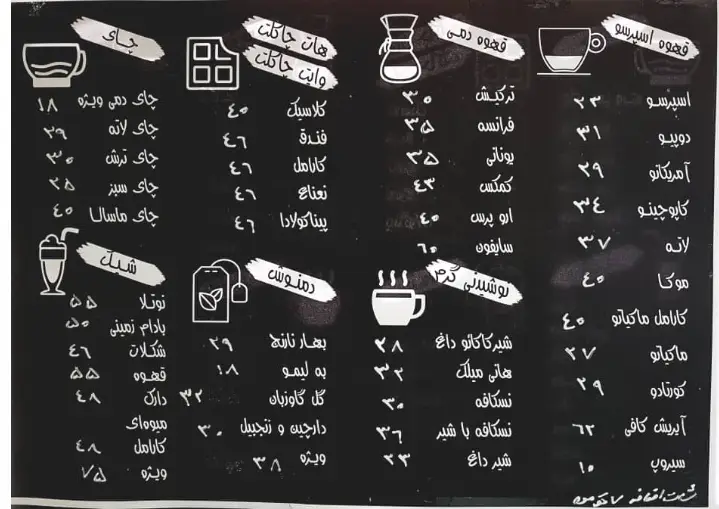 قهوه اسپرسو
اسپرسو ۲۳
دوپیو ۳۱
آمریکانو ۲۹
کاپوچینو ۳۴
لاته ۳۷
موکا ۴۰
کارامل ماکیاتو ۴۰
ماکیاتو ۲۷
کورتادو ۲۹
آیریش کافی ۶۲
سیروپ ۱۰
قهوه دمی
ترکیش ۳۰
فرانسه ۳۵
یونانی ۳۵
کمکس ۴۳
ارو پرس ۴۰
سایفون ۶۰
نوشیدنی گرم
شیرکاکائو داغ ۲۸
هانی میلک ۳۲
نسکافه ۳۰
نسکافه با شیر ۳۶
شیر داغ ۲۳
هات چاکلت
وایت چاکلت
کلاسیک ۴۰
فندق ۴۶
کارامل ۴۶
نعناع ۴۶
پیناکولادا ۴۶
دمنوش
بهار نارنج ۲۹
به لیمو ۱۸
گل گاوزبان ۳۲
دارچین و زنجبیل ۳۰
ویژه ۳۸
چای
چای دمی ویژه ۱۸
چای لاته ۲۹
چای ترش ۳۰
چای سبز ۲۵
چای ماسالا ۴۰
شیک
نوتلا ۵۵
بادام زمینی ۵۰
شکلات ۴۶
قهوه ۵۵
دارک ۴۸
میوه‌ای
کارامل ۴۸
ویژه ۷۵